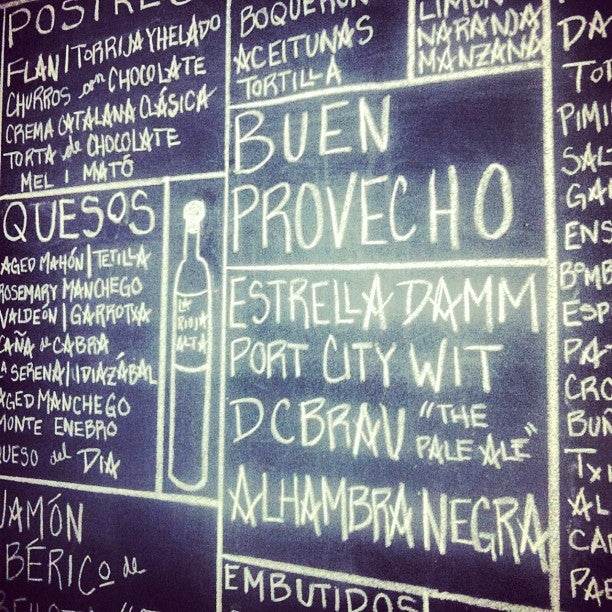 POSTRES
FLAN / TORRIJA Y HELADO
CHURROS con CHOCOLATE
CREMA CATALANA CLÁSICA
TORTA de CHOCOLATE
MEL I MATÓ
QUESOS
AGED MAHÓN / TETILLA
ROSEMARY MANCHEGO
VALDEÓN / GARROTXA
CAÑA de CABRA
LA SERENA / IDIAZÁBAL
AGED MANCHEGO
MONTE ENEBRO
QUESO del DIA
LA
RIOJA
ALTA
JAMÓN
IBÉRICO de
BOQUERON
ACEITUNAS
TORTILLA
LIMÓN
NARANJA
MANZANA
BUEN
PROVECHO
ESTRELLA DAMM
PORT CITY WIT
DC BRAU "THE
PALE ALE"
ALHAMBRA NEGRA
EMBUTIDOS
DA
TOT
PIMI
SAL
GA
ENS
BOMB
ESP
PA
CRO
BUN
TX
AL
CA
PAE